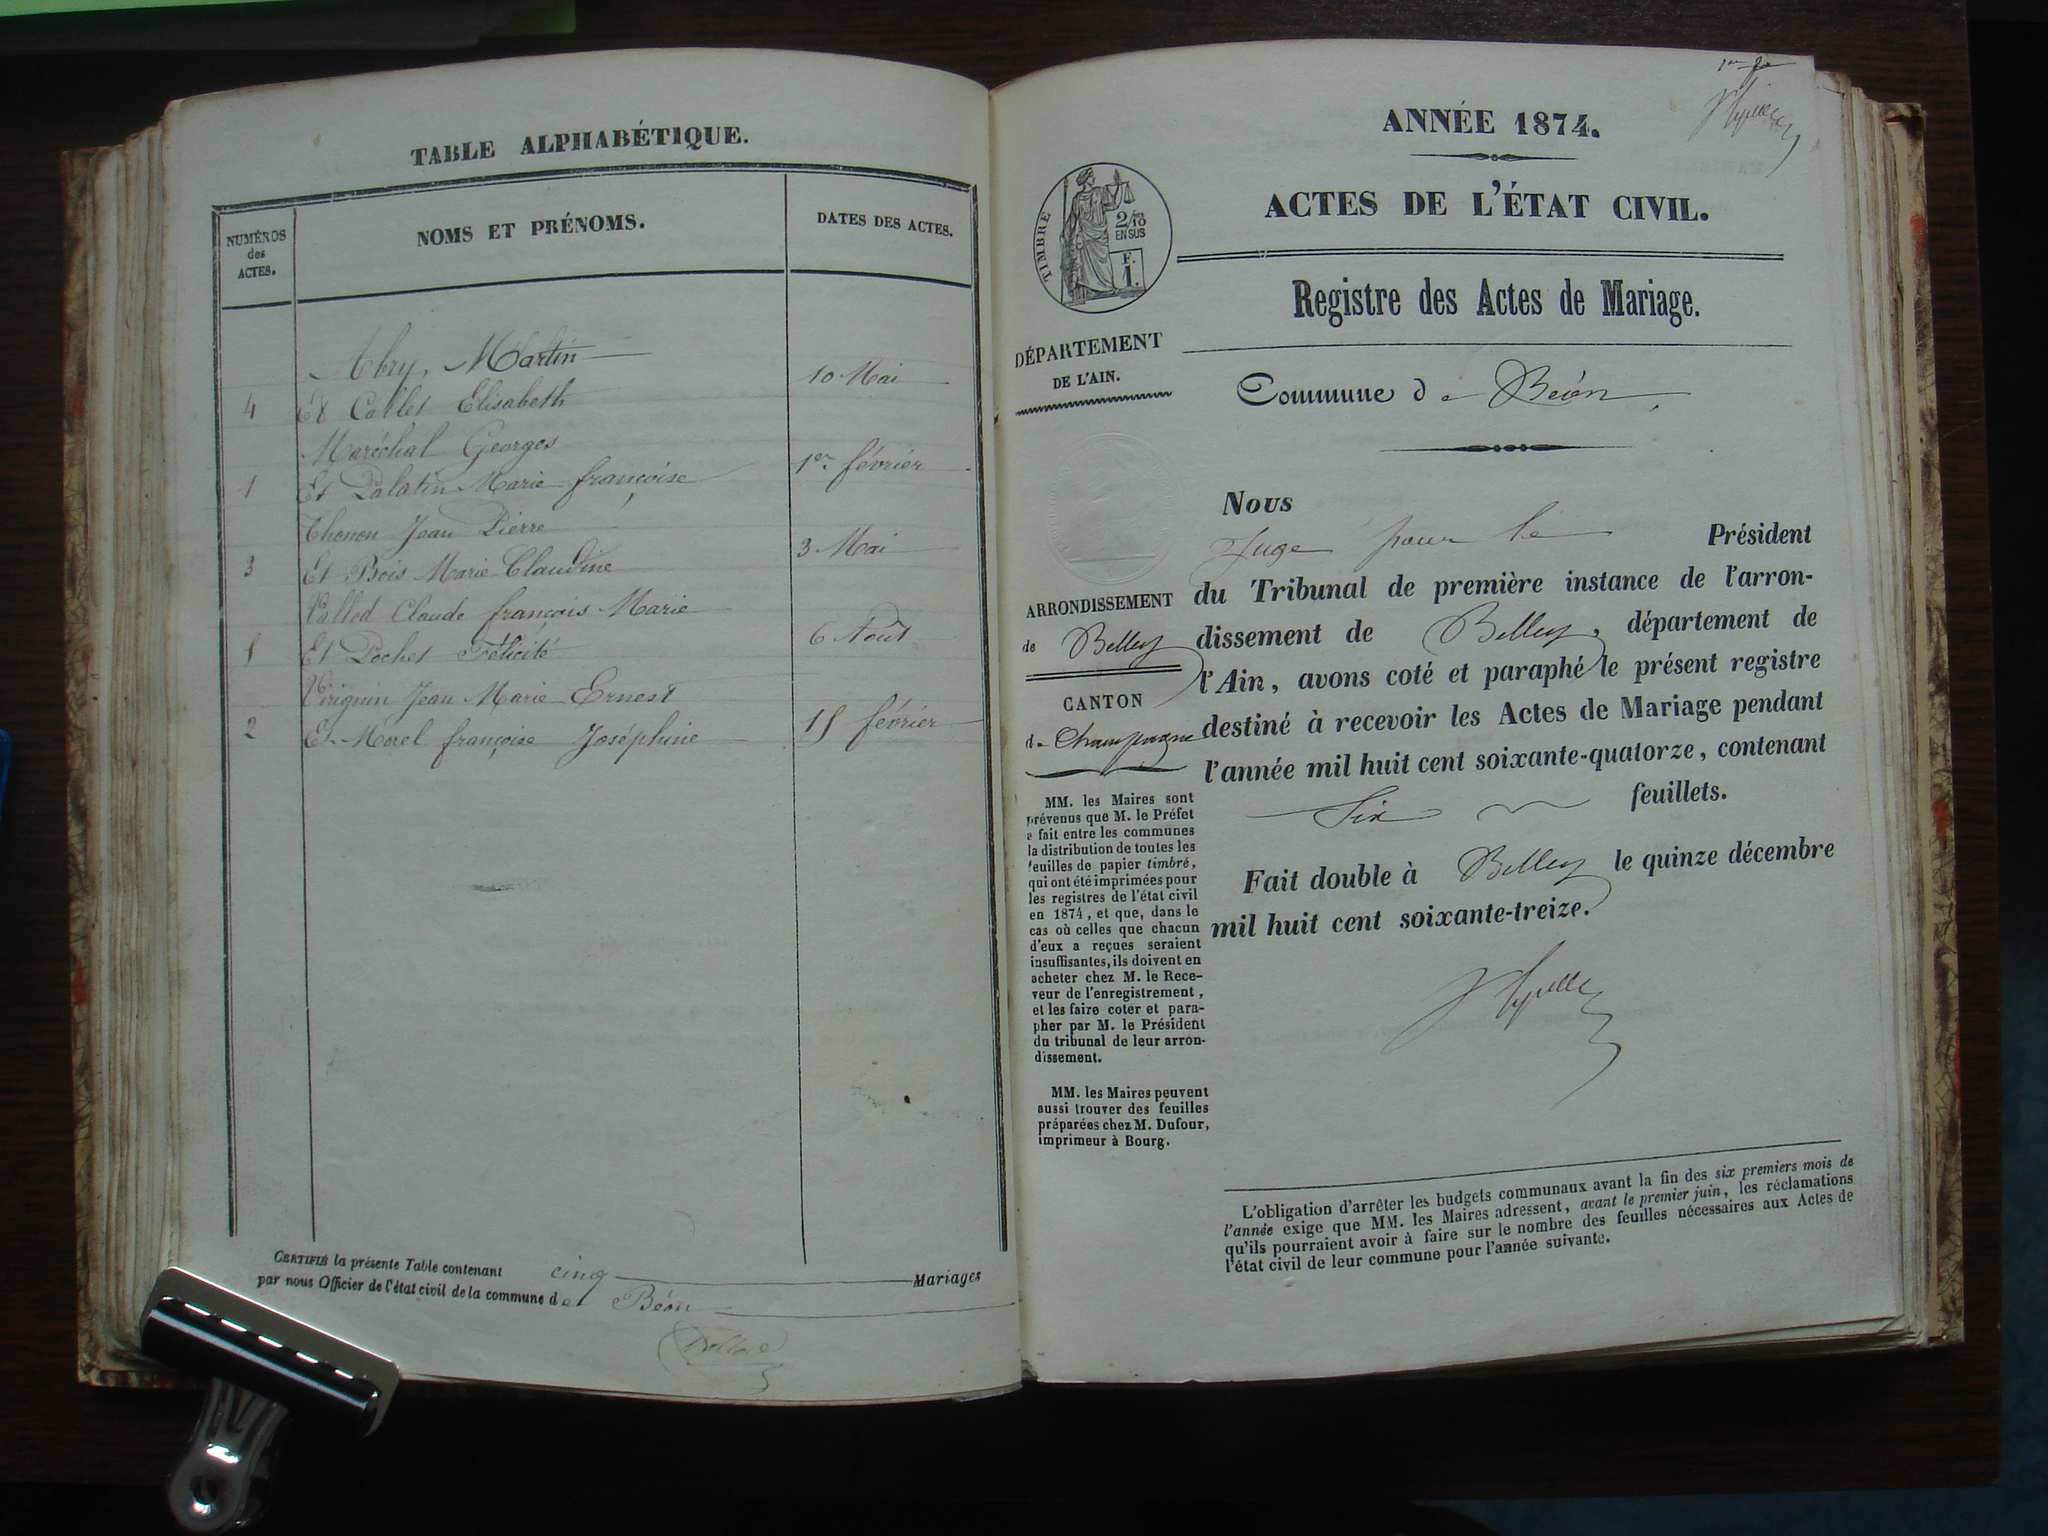 TABLE ALPHABÉTIQUE.
NUMÉROS
des
ACTES.
NOMS ET PRÉNOMS.
DATES DES ACTES.
Abry, Martin
10 Mai
4 Et Collet Elisabeth
Maréchal Georges
1er février
1 Et Palatin Marie françoise
Thonon Jean Pierre
3 Mai
3 Et Bois Marie Claudine
Vallod Claude françois Marie
6 Aout
5 Et Pochet Félicité
Virignin Jean Marie Ernest
15 février
2 Et Morel françoise Joséphine
CERTIFIÉ la présente Table contenant cinq Mariages
par nous Officier de l'état civil de la commune de Béon
ANNÉE 1874.
ACTES DE L'ÉTAT CIVIL.
TIMBRE
2/10
EN SUS
F.
1.
Registre des Actes de Mariage.
DÉPARTEMENT
DE L'AIN.
Commune de Béon
ARRONDISSEMENT
de Belley
CANTON
de Champagne
MM. les Maires sont
prévenus que M. le Préfet
a fait entre les communes
la distribution de toutes les
feuilles de papier timbré,
qui ont été imprimées pour
les registres de l'état civil
en 1874, et que, dans le
cas où celles que chacun
d'eux a reçues seraient
insuffisantes, ils doivent en
acheter chez M. le Rece-
veur de l'enregistrement,
et les faire coter et para-
pher par M. le Président
du tribunal de leur arron-
dissement.
MM. les Maires peuvent
aussi trouver des feuilles
préparées chez M. Dufour,
imprimeur à Bourg.
Nous
Juge pour le Président
du Tribunal de première instance de l'arron-
dissement de Belley, département de
l'Ain, avons coté et paraphé le présent registre
destiné à recevoir les Actes de Mariage pendant
l'année mil huit cent soixante-quatorze, contenant
Six feuillets.
Fait double à Belley le quinze décembre
mil huit cent soixante-treize.
L'obligation d'arrêter les budgets communaux avant la fin des six premiers mois de
l'année exige que MM. les Maires adressent, avant le premier juin, les réclamations
qu'ils pourraient avoir à faire sur le nombre des feuilles nécessaires aux Actes de
l'état civil de leur commune pour l'année suivante.